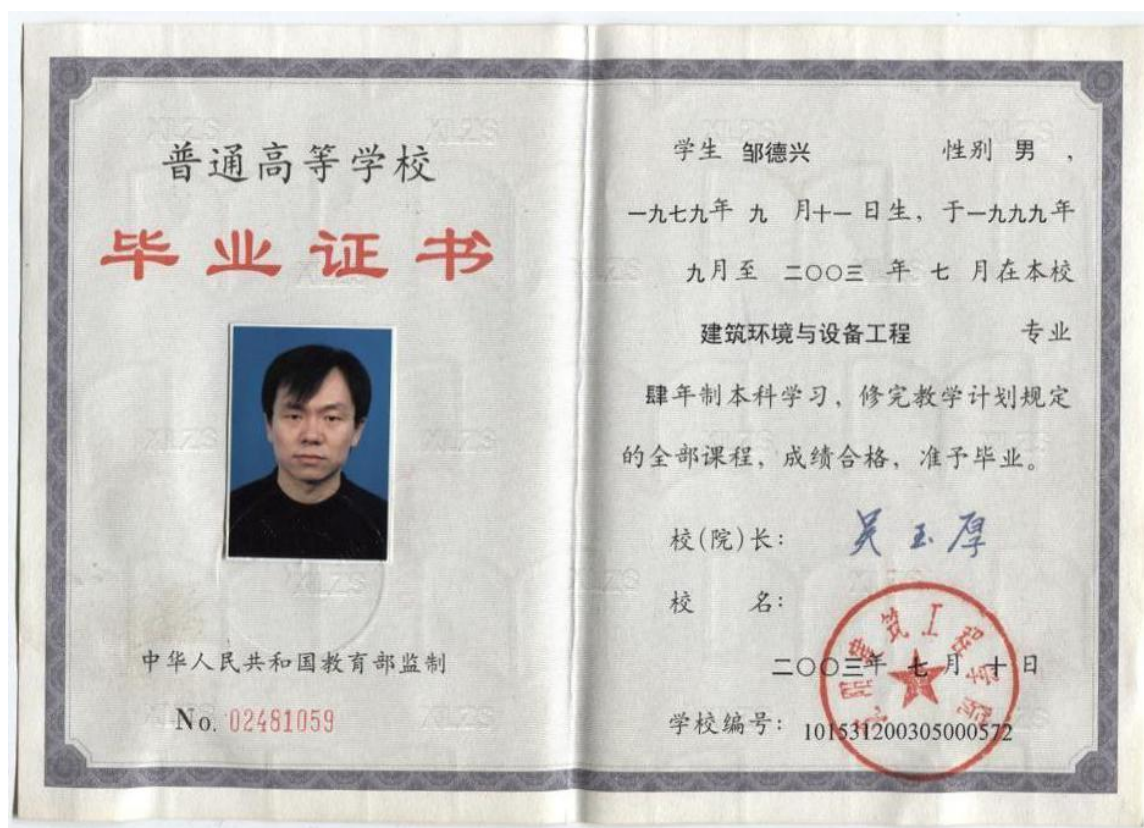 普通高等学校
毕业证书
中华人民共和国教育部监制
No. 02481059
学生 邹德兴 性别 男 ,
一九七九年 九 月十一 日生, 于一九九九年
九月至 二〇〇三 年 七 月在本校
建筑环境与设备工程 专业
肆年制本科学习, 修完教学计划规定
的全部课程, 成绩合格, 准予毕业。
校(院)长: 吴玉厚
校 名:
沈阳建筑工程学院
二〇〇三年 七 月 十 日
学校编号: 101531200305000572
XLZS